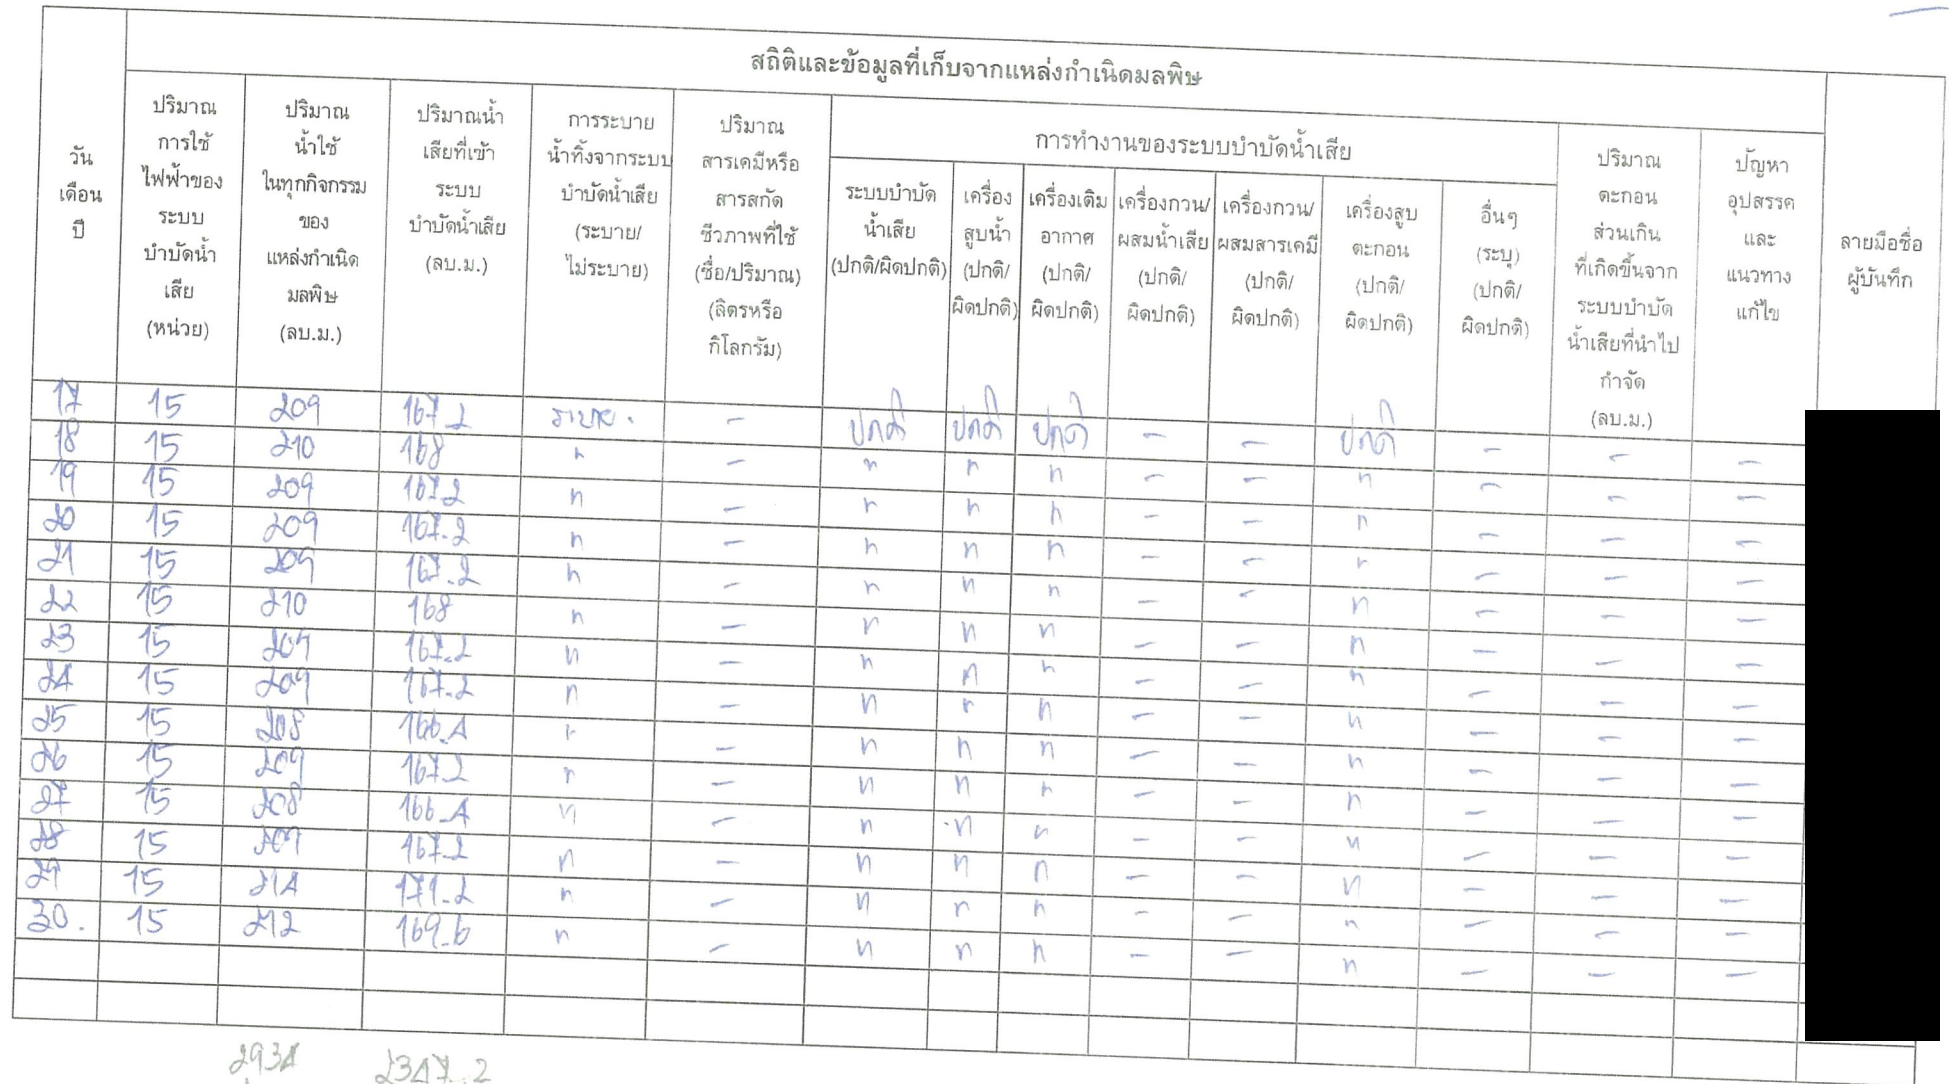 สถิติและข้อมูลที่เก็บจากแหล่งกำเนิดมลพิษ
วัน
เดือน
ปี
ปริมาณ
การใช้
ไฟฟ้าของ
ระบบ
บำบัดน้ำ
เสีย
(หน่วย)
ปริมาณ
น้ำใช้
ในทุกกิจกรรม
ของ
แหล่งกำเนิด
มลพิษ
(ลบ.ม.)
ปริมาณน้ำ
เสียที่เข้า
ระบบ
บำบัดน้ำเสีย
(ลบ.ม.)
การระบาย
น้ำทิ้งจากระบบ
บำบัดน้ำเสีย
(ระบาย/
ไม่ระบาย)
ปริมาณ
สารเคมีหรือ
สารสกัด
ชีวภาพที่ใช้
(ชื่อ/ปริมาณ)
(ลิตรหรือ
กิโลกรัม)
การทำงานของระบบบำบัดน้ำเสีย
ระบบบำบัด
น้ำเสีย
(ปกติ/ผิดปกติ)
เครื่อง
สูบน้ำ
(ปกติ/
ผิดปกติ)
เครื่องเติม
อากาศ
(ปกติ/
ผิดปกติ)
เครื่องกวน/
ผสมน้ำเสีย
(ปกติ/
ผิดปกติ)
เครื่องกวน/
ผสมสารเคมี
(ปกติ/
ผิดปกติ)
เครื่องสูบ
ตะกอน
(ปกติ/
ผิดปกติ)
อื่นๆ
(ระบุ)
(ปกติ/
ผิดปกติ)
ปริมาณ
ตะกอน
ส่วนเกิน
ที่เกิดขึ้นจาก
ระบบบำบัด
น้ำเสียที่นำไป
กำจัด
(ลบ.ม.)
ปัญหา
อุปสรรค
และ
แนวทาง
แก้ไข
ลายมือชื่อ
ผู้บันทึก
17 15 209 167.2 ระบาย. - ปกติ ปกติ ปกติ - - ปกติ - - -
18 15 210 168 " - " " " - - " - - -
19 15 209 167.2 " - " " " - - " - - -
20 15 209 167.2 " - " " " - - " - - -
21 15 209 167.2 " - " " " - - " - - -
22 15 210 168 " - " " " - - " - - -
23 15 209 167.2 " - " " " - - " - - -
24 15 209 167.2 " - " " " - - " - - -
25 15 208 166.4 " - " " " - - " - - -
26 15 209 167.2 " - " " " - - " - - -
27 15 208 166.4 " - " " " - - " - - -
28 15 209 167.2 " - " " " - - " - - -
29 15 214 171.2 " - " " " - - " - - -
30. 15 212 169.6 " - " " " - - " - - -
2934 2347.2